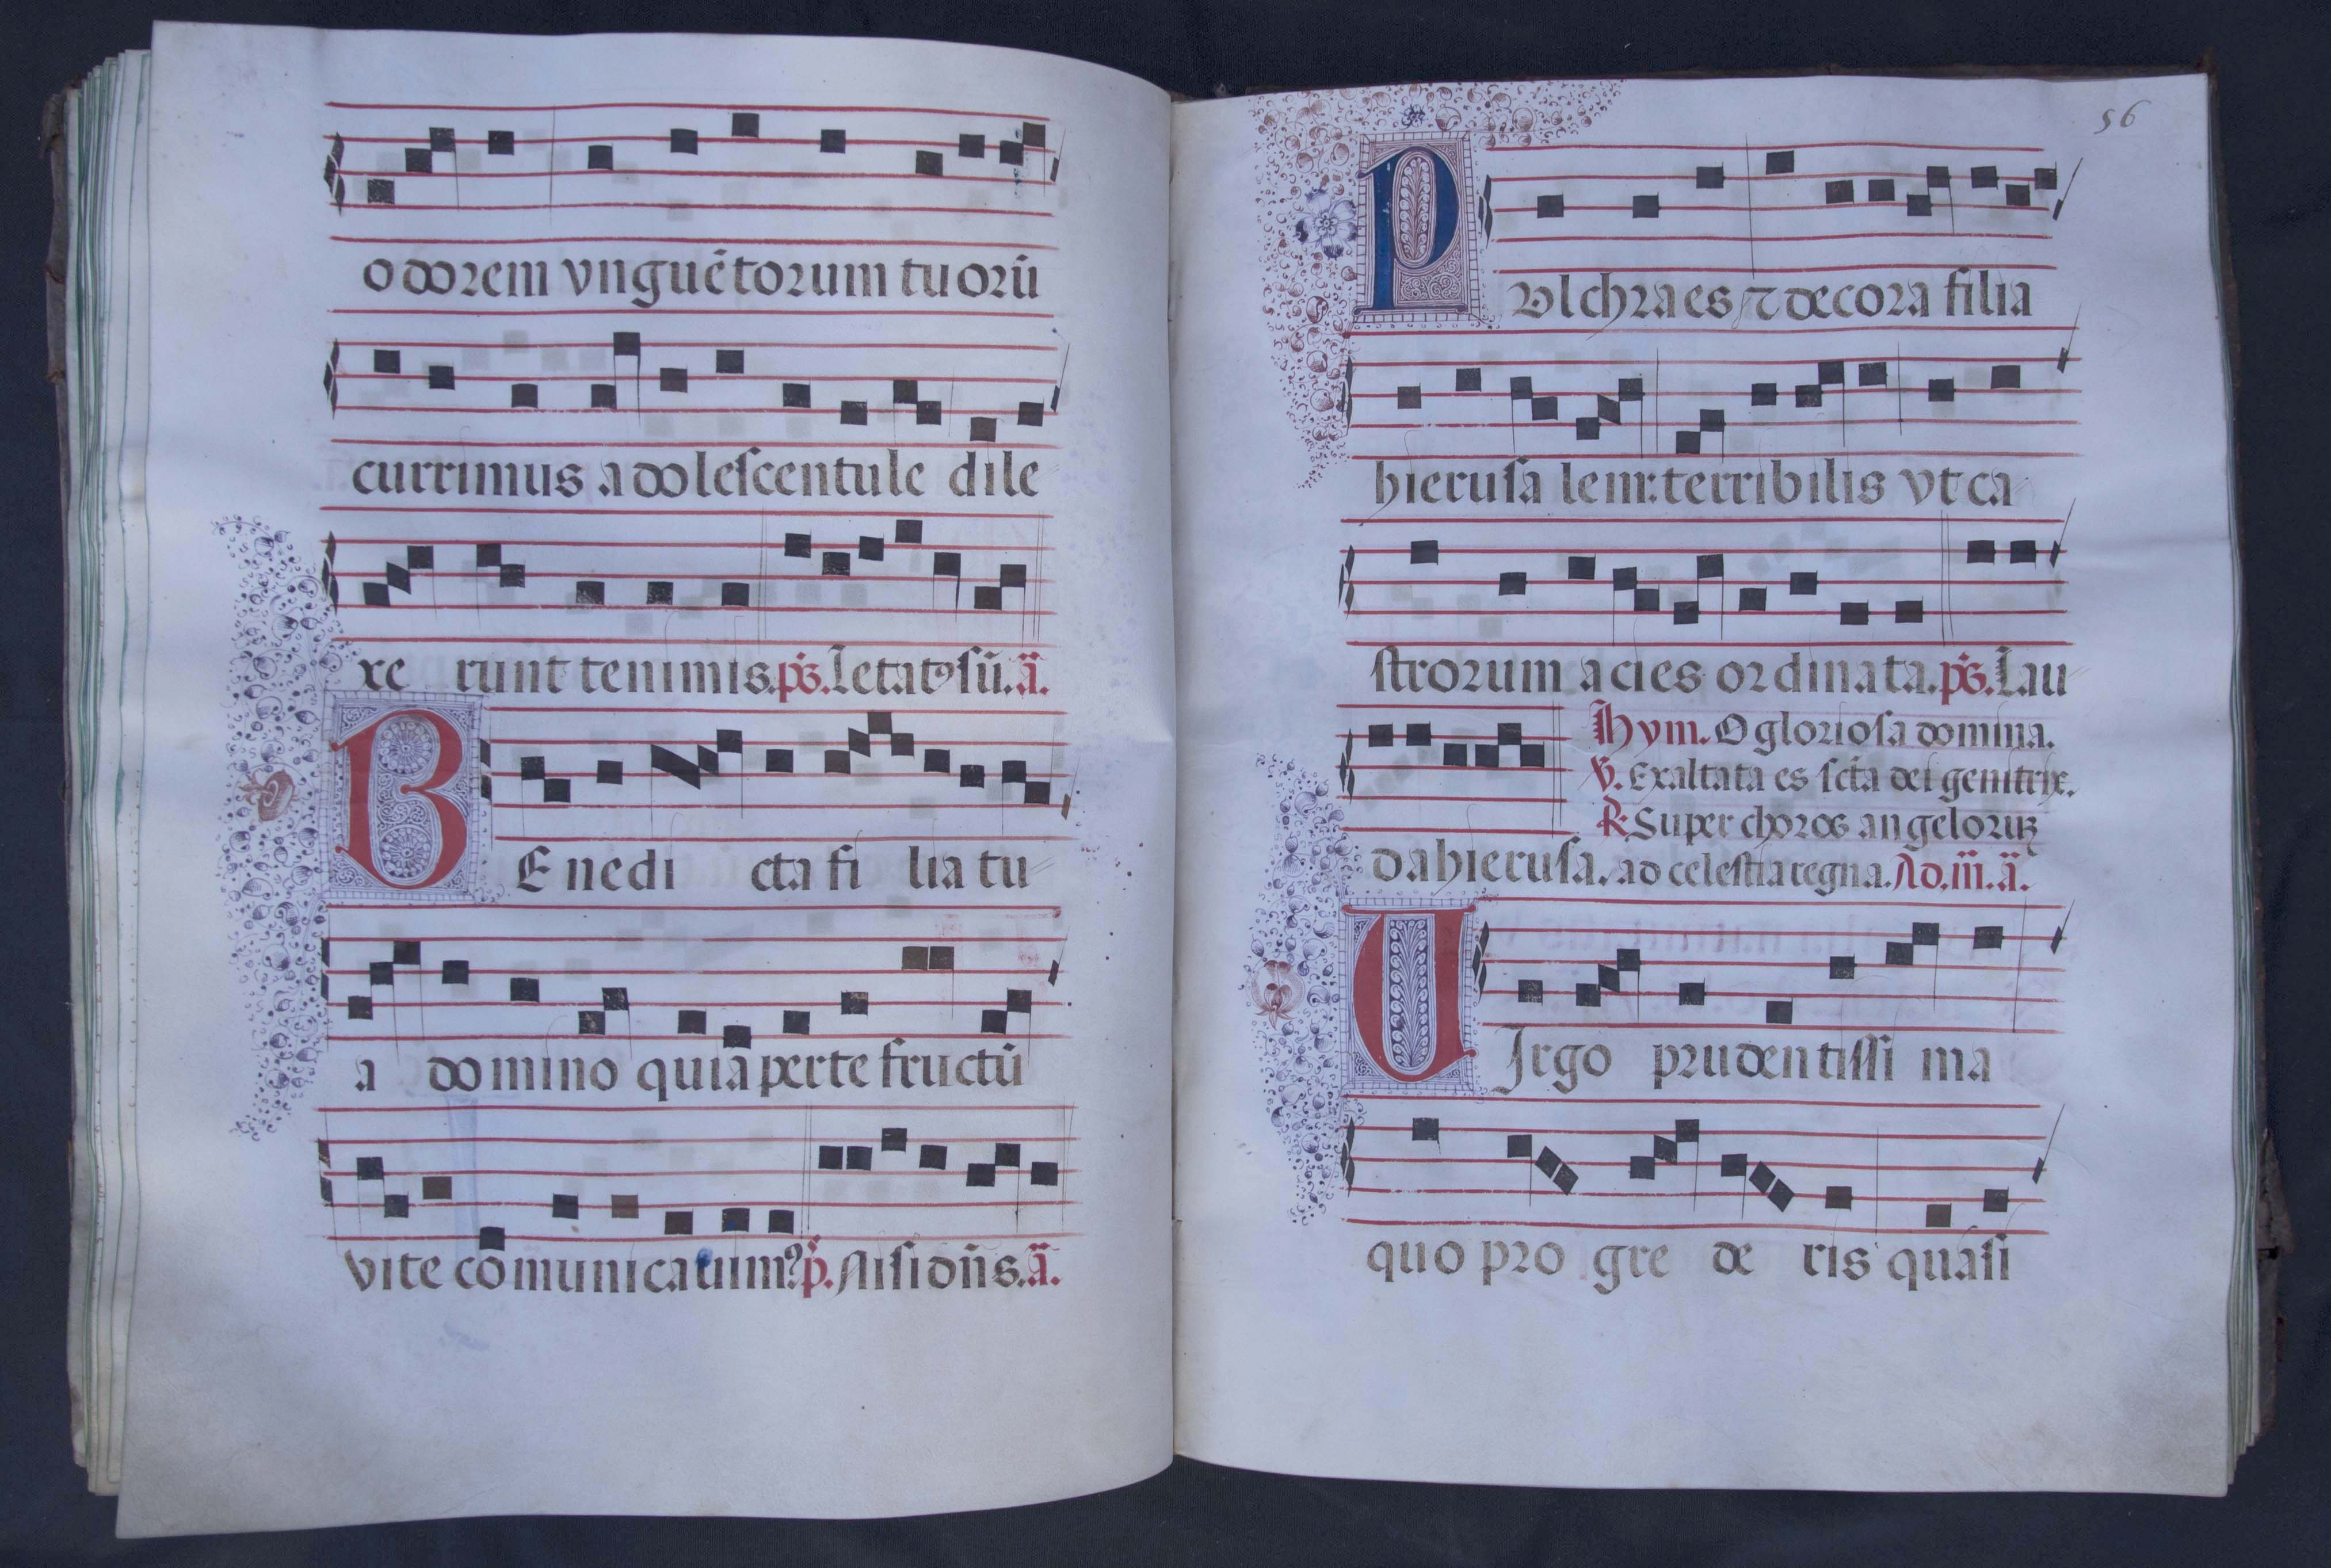 odorem vnguētorum tuorū
currimus adolescentule dile
xe runt te nimis. ps. Letatꝰ sū. ā.
BEnedi cta fi lia tu
a domino quia per te fructū
vite cōmunicauim? p. Nisi dn̄s. ā.
56
PVlchra es ⁊ decora filia
hierusa lem: terribilis vt ca
strorum acies ordinata. ps. Lau
Hym. O gloriosa domina.
V. Exaltata es scta dei genitrix.
R. Super choros angeloruꝫ
da hierusa. ad celestia regna. Ad. iii. ā.
VIrgo prudentissi ma
quo pro gre de ris quasi